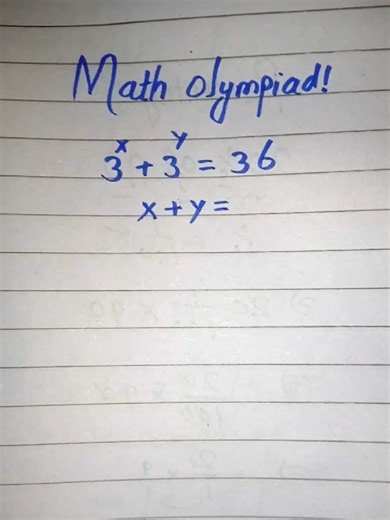 Math olympiad!
3ˣ + 3ʸ = 36
x + y =